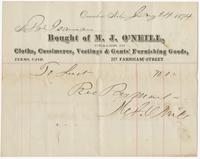 Omaha, Neb. July 24 1874
Bought of M. J. O'NEILL,
DEALER IN
Cloths, Cassimeres, Vestings & Gents' Furnishing Goods,
TERMS, CASH. 217 FARNHAM STREET
To Suit
Rec Payment
M. J. O'Neill